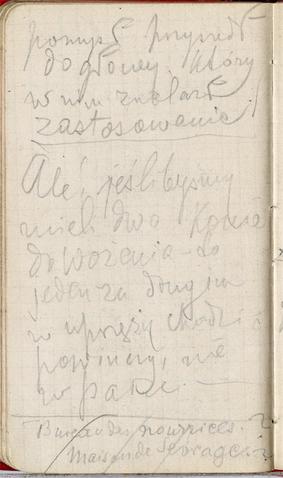 pomysł przyszedł
do głowy, który
w nim znalazł
zastosowanie!
Ale, jeślibyśmy
mieli dwa konie
do wożenia – to
jeden za drugim
w uprzęży chodzić
powinny, nie
w parze. —
Bureau des nourrices.
Maison de Sevrage